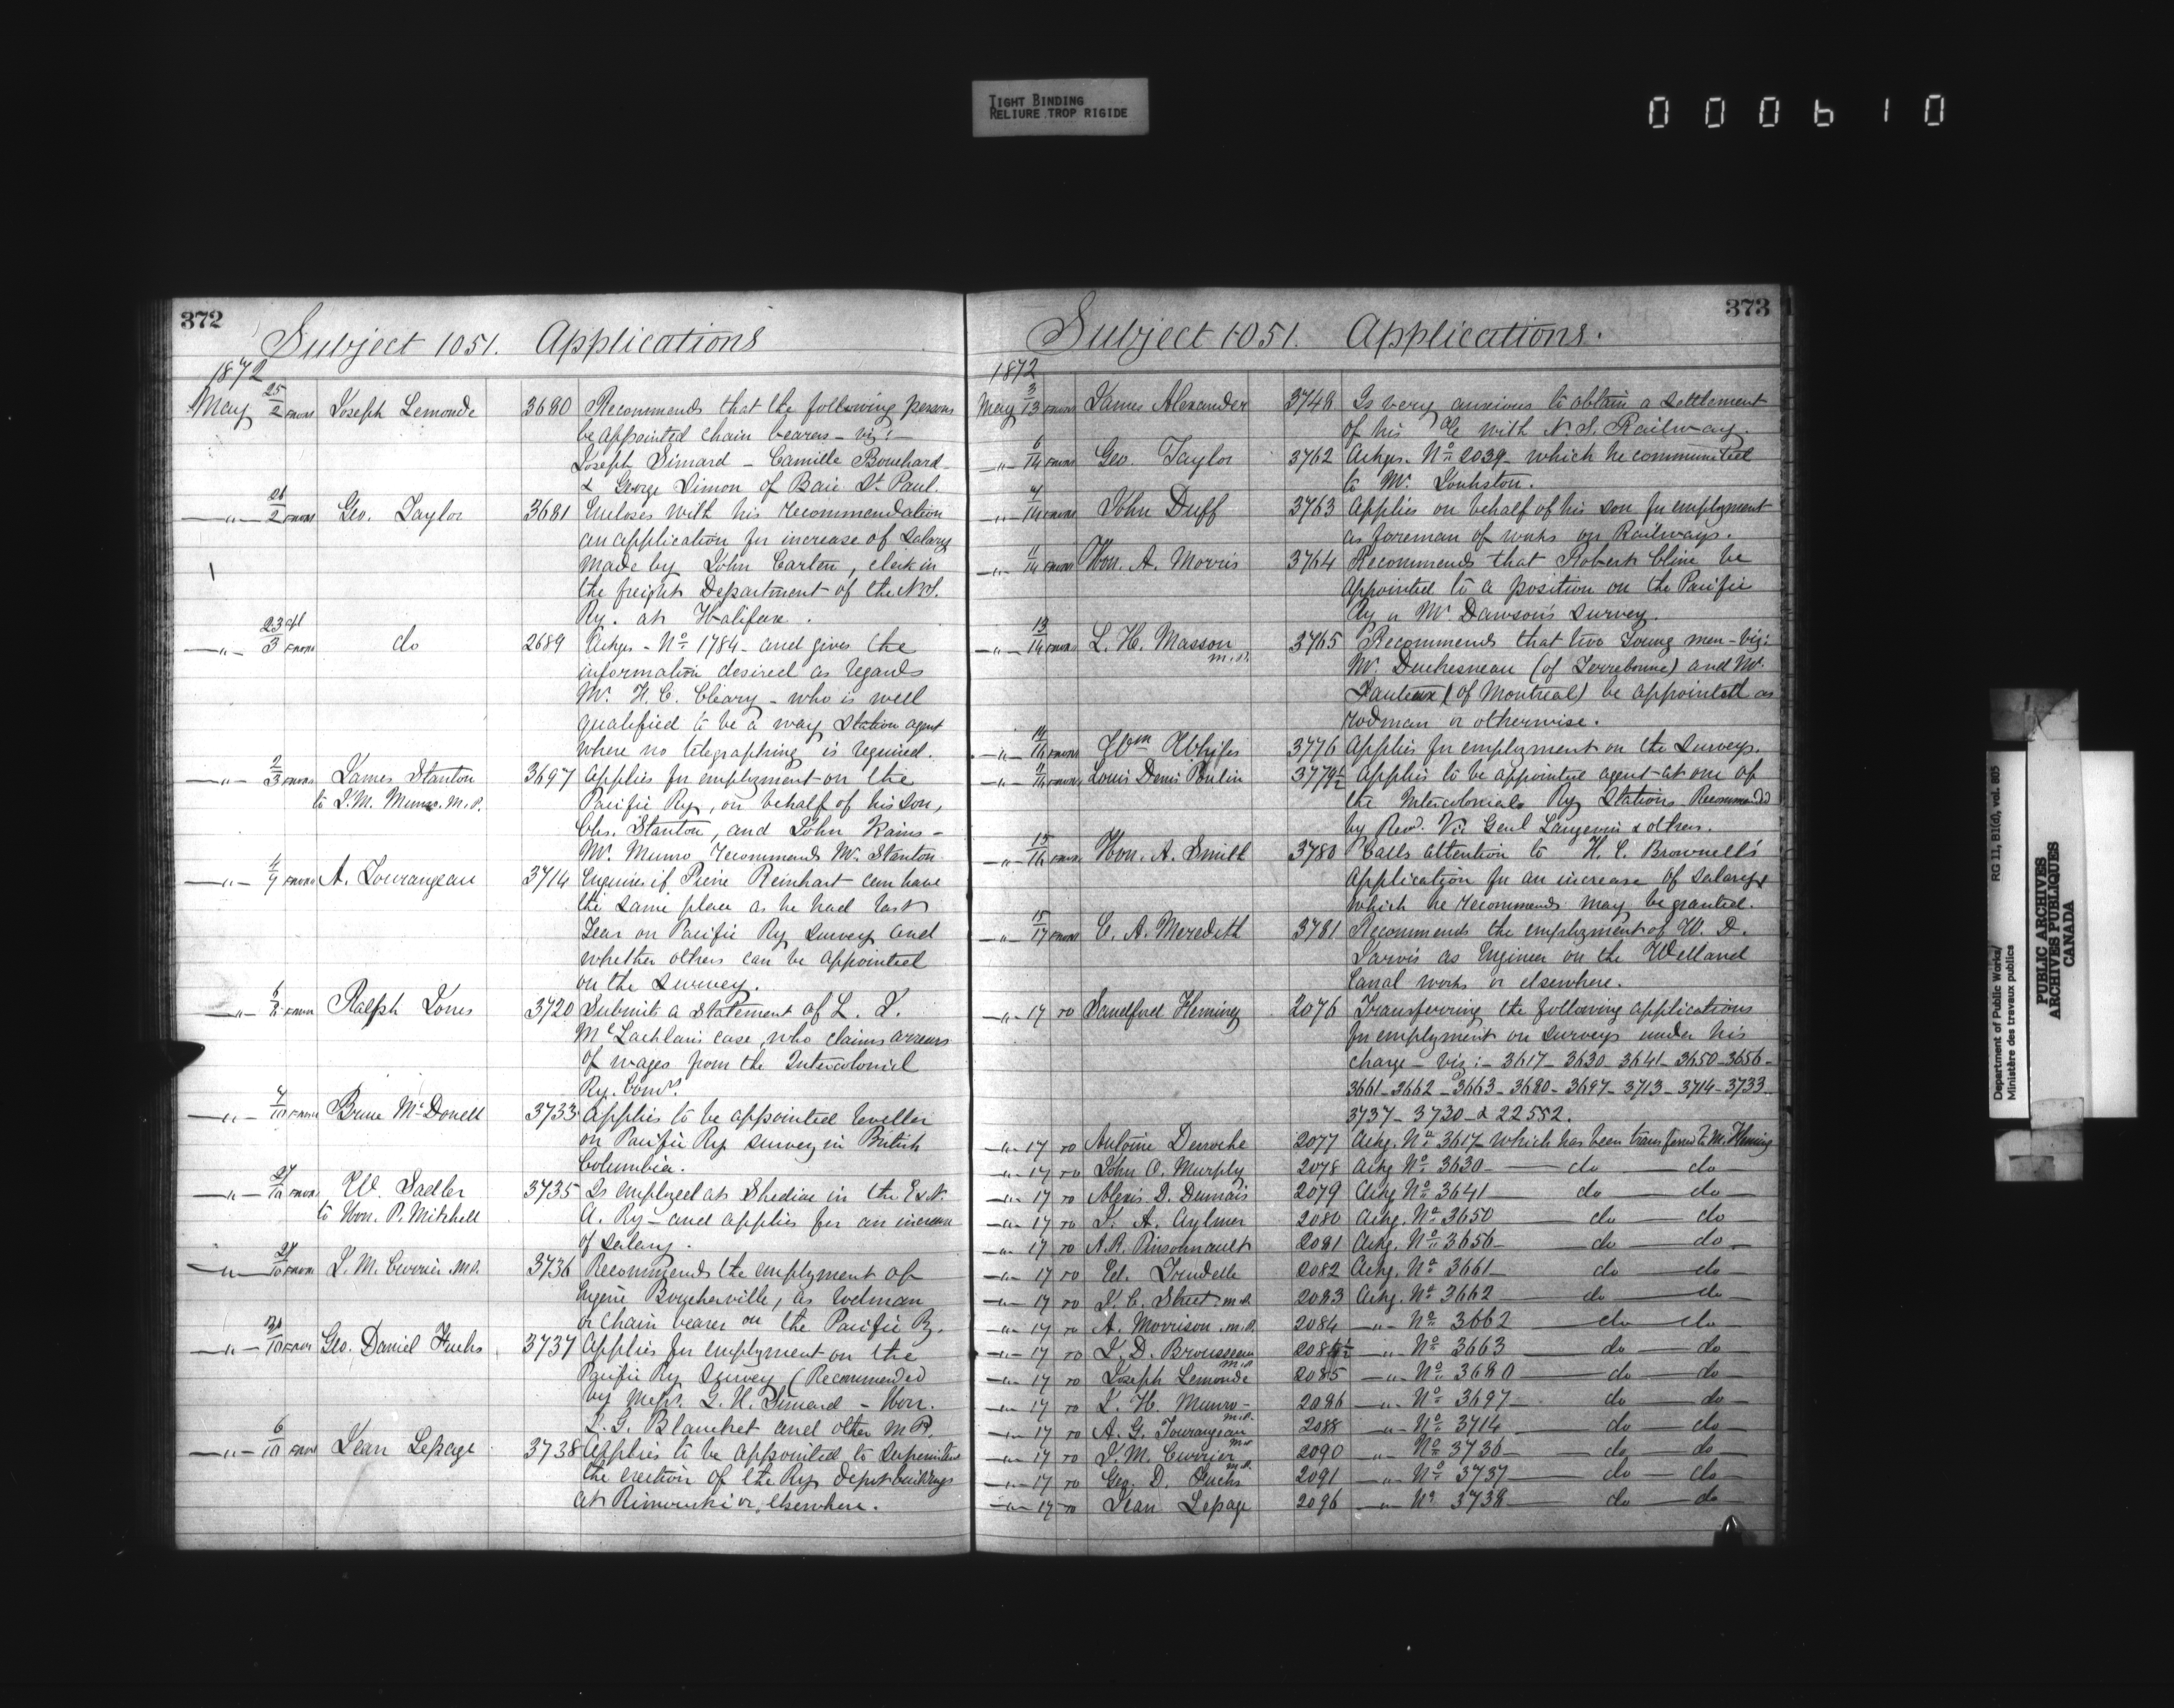 TIGHT BINDING
RELIURE TROP RIGIDE
000610
372
Subject 1051. Applications
1872
May 25/2 FROM Joseph Lemonde 3680 Recommends that the following persons
be appointed chain bearers - viz:-
Joseph Simard - Camille Bouchard
& George Simon of Baie St. Paul.
-"- 26/2 FROM Geo. Taylor 3681 Encloses with his recommendation
an application for increase of salary
made by John Carten, clerk in
the freight Department of the N.S.
Ry. at Halifax.
-"- 23 apl/3 FROM do 2689 Ackgs - No 1784 - and gives the
information desired as regards
Mr. H. C. Cleary - who is well
qualified to be a way station agent
where no telegraphing is required.
-"- 2/3 FROM James Stanton 3697 Applies for employment on the
to J. M. Munro. M.P. Pacific Ry, on behalf of his son,
Chs. Stanton, and John Rains -
Mr. Munro recommends Mr. Stanton
-"- 4/9 FROM A. Tourangeau 3714 Enquires if Pierre Reinhart can have
the same place as he had last
Year on Pacific Ry survey and
whether others can be appointed
on the survey.
-"- 6/8 FROM Ralph Jones 3720 Submits a statement of L. J.
McLachlan's case, who claims arrears
of wages from the Intercolonial
Ry. Comrs.
-"- 7/10 FROM Bruce McDonell 3733 Applies to be appointed leveller
on Pacific Ry survey in British
Columbia.
-"- 27/10 FROM W. Sadler 3735 Is employed at Shediac in the E. & N.
to Hon. P. Mitchell A. Ry - and applies for an increase
of salary.
-"- 27/10 FROM J. M. Currier M.P. 3736 Recommends the employment of
Eugene Boucherville, as rodman
or chain bearer on the Pacific Ry.
-"- /10 FROM Geo. Daniel Fuchs 3737 Applies for employment on the
Pacific Ry Survey (Recommended
by Messrs. G. H. Simard - Hon.
J. G. Blanchet and other M.P.
-"- 6/10 FROM Jean Lepage 3738 Applies to be appointed to superintend
the erection of the Ry depot buildings
at Rimouski or elsewhere.
373
Subject 1051. Applications.
1872
May 3/13 FROM James Alexander 3748 Is very anxious to obtain a settlement
of his a/c with N.S. Railway.
-"- 6/14 FROM Geo. Taylor 3762 Ackgs. No 2039 - which he communited
to Mr. Johnston.
-"- /14 FROM John Duff 3763 Applies on behalf of his son for employment
as foreman of works on Railways.
-"- 11/14 FROM Hon. A. Morris 3764 Recommends that Robert Cline be
appointed to a position on the Pacific
Ry or Mr. Dawson's survey.
-"- 13/14 FROM L. H. Masson M.P. 3765 Recommends that two young men - viz:
Mr. Duchesneau (of Terrebonne) and Mr.
(of Montreal) be appointed as
rodman or otherwise.
-"- 14/16 FROM Wm 3776 Applies for employment on the surveys.
-"- /16 FROM Louis Denis Poulin 3779½ Applies to be appointed agent at one of
the Intercolonial Ry Stations Recommended
by Revd. Vic Genl Langevin & others.
-"- 15/16 FROM Hon. A. Smith 3780 Calls attention to H. C. Brownell's
application for an increase of salary &
which he recommends may be granted.
-"- 15/17 FROM E. A. Meredith 3781 Recommends the employment of W. D.
Jarvis as Engineer on the Welland
Canal works or elsewhere.
-"- 17 TO Sandford Fleming 2076 Transferring the following applications
for employment on surveys under his
charge - viz:- 3617 - 3630 - 3641 - 3650 - 3656 -
3661 - 3662 - 3663 - 3680 - 3697 - 3713 - 3714 - 3733 -
3737 - 3730 - & 22552.
-"- 17 TO Antoine Deroche 2077 Ackg. No 3617 - which has been transferred to Mr. Fleming
-"- 17 TO John O. Murphy 2078 Ackg No 3630 - do - do -
-"- 17 TO Alexis D. Dumais 2079 Ackg No 3641 - do - do -
-"- 17 TO J. A. Aylmer 2080 Ackg. No 3650 - do - do -
-"- 17 TO A. R. Pinsonnault 2081 Ackg. No 3656 - do - do -
-"- 17 TO Ed. Trudelle 2082 Ackg. No 3661 - do - do -
-"- 17 TO J. C. Street M.P. 2083 Ackg. No 3662 - do - do -
-"- 17 TO A. Morrison M.P. 2084 -"- No 3662 - do - do -
-"- 17 TO J. D. Brousseau M.P. 2084½ -"- No 3663 - do - do -
-"- 17 TO Joseph Lemonde 2085 -"- No 3680 - do - do -
-"- 17 TO J. H. Munro - M.P. 2086 -"- No 3697 - do - do -
-"- 17 TO A. G. Tourangeau M.P. 2088 -"- No 3714 - do - do -
-"- 17 TO J. M. Currier M.P. 2090 -"- No 3736 - do - do -
-"- 17 TO Geo. D. Fuchs 2091 -"- No 3737 - do - do -
-"- 17 TO Jean Lepage 2096 -"- No 3738 - do - do -
Department of Public Works/ RG 11, B1(d), vol. 805
Ministère des travaux publics
PUBLIC ARCHIVES
ARCHIVES PUBLIQUES
CANADA